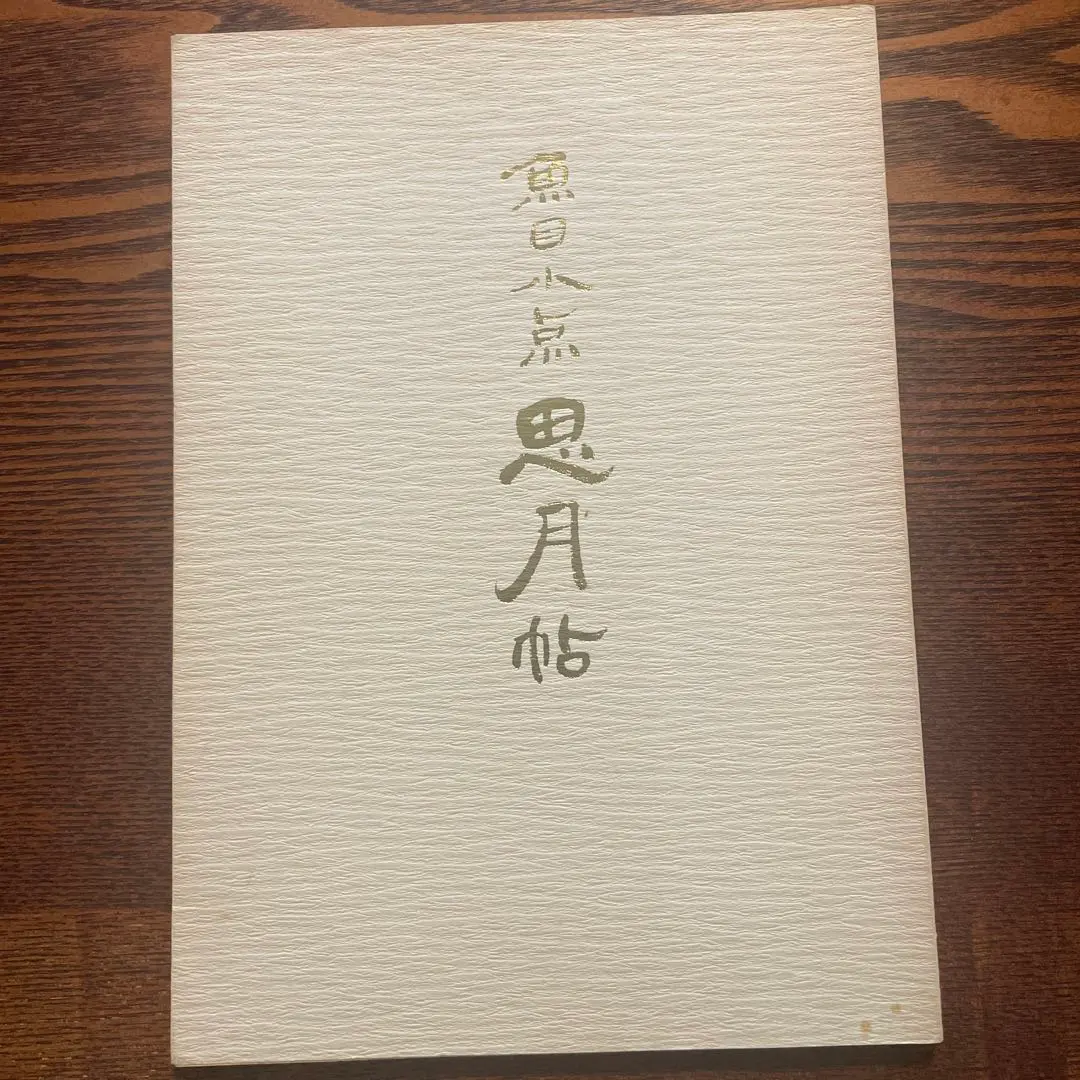 魚目小点思月帖